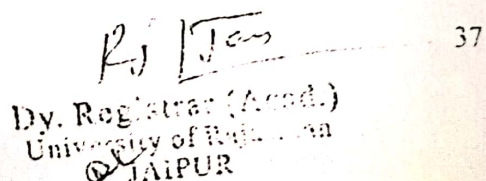 37
Rj | Jan
Dy. Registrar (Acad.)
University of Rajasthan
JAIPUR